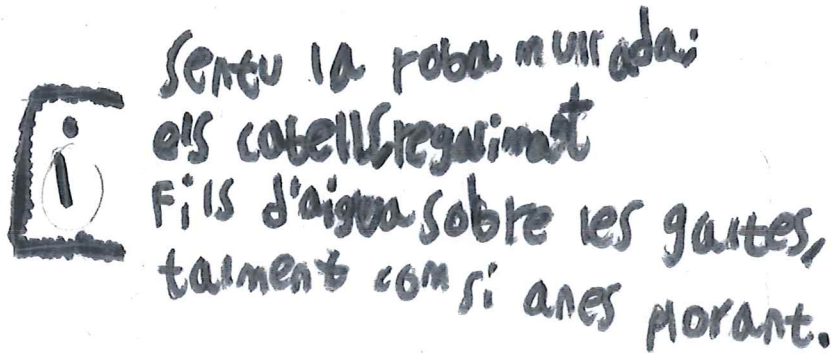 i
sentu la roba mullada:
els cabells regalimant
Fils d'aigua sobre les galtes,
talment com si anes plorant.